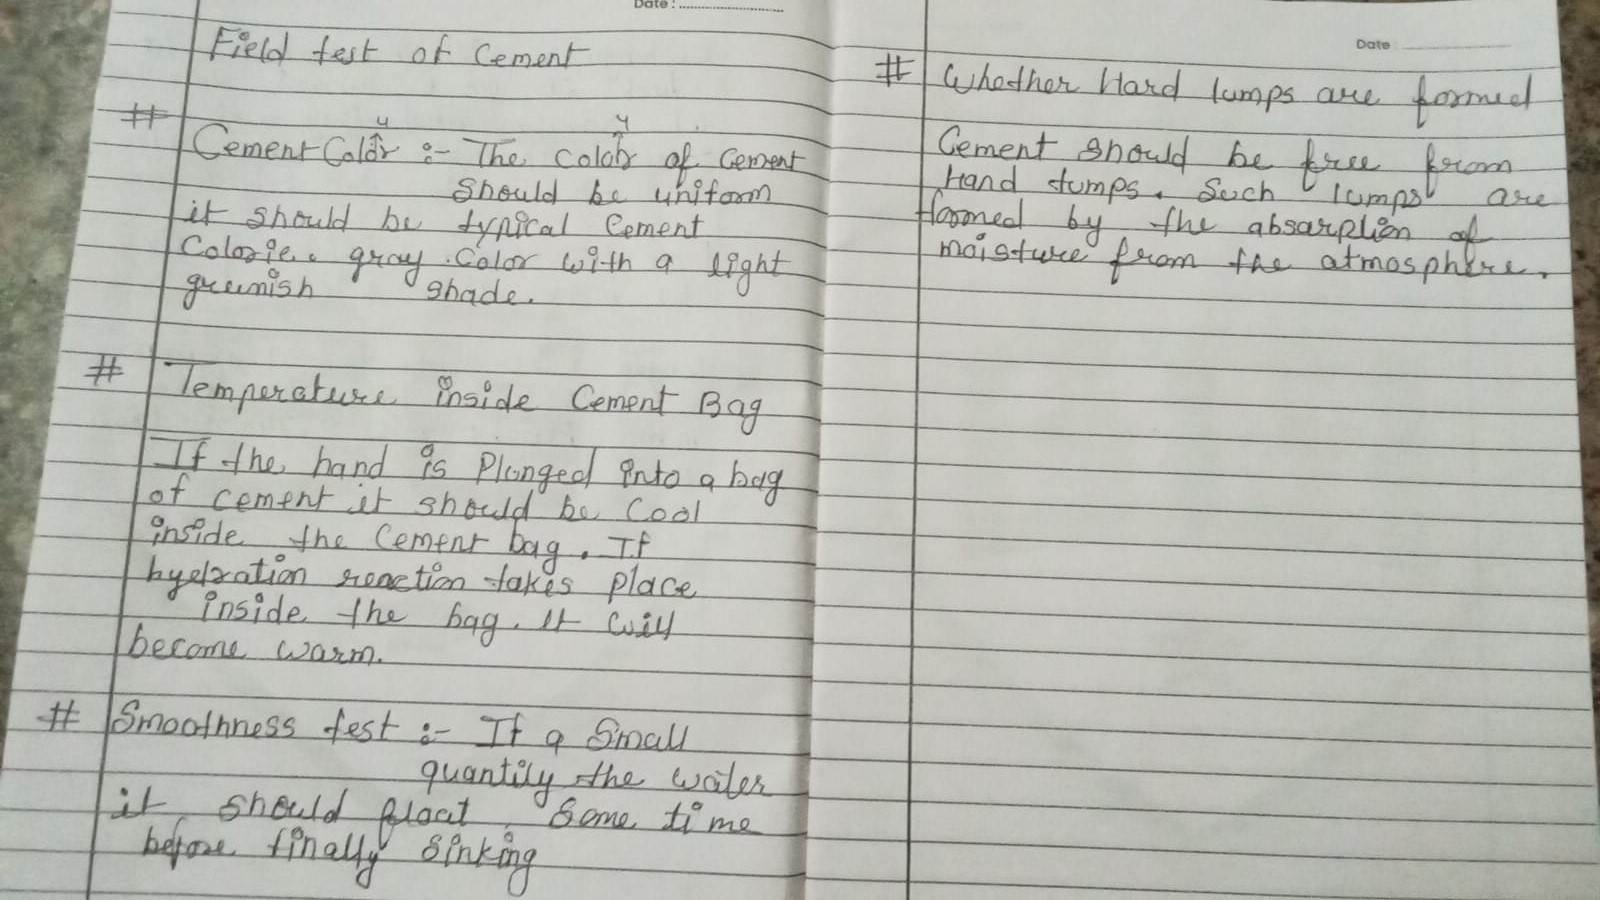 Date :
Field test of Cement
# Cement Color :- The color of cement
should be uniform
it should be typical Cement
Color ie. gray color with a light
greenish shade.
# Temperature inside Cement Bag
If the hand is Plunged into a bag
of cement it should be Cool
inside the Cement bag. If
hydration reaction takes place
inside the bag. It will
become warm.
# Smoothness test :- If a Small
quantity the water
it should float Some time
before finally Sinking
Date
# Whether Hard lumps are formed
Cement should be free from
Hand lumps. Such lumps are
formed by the absarption of
moisture from the atmosphere.